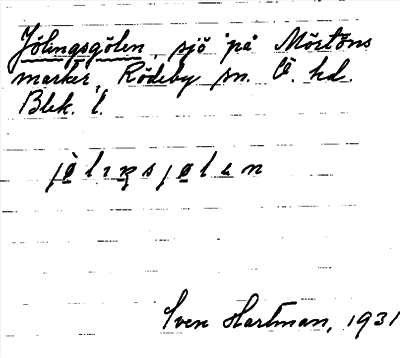 Jölingsgölen, sjö på Mörtöns
marker, Rödeby sn. Ö. hd.
Blek. l.
jølıŋsjølen
Sven Hartman, 1931